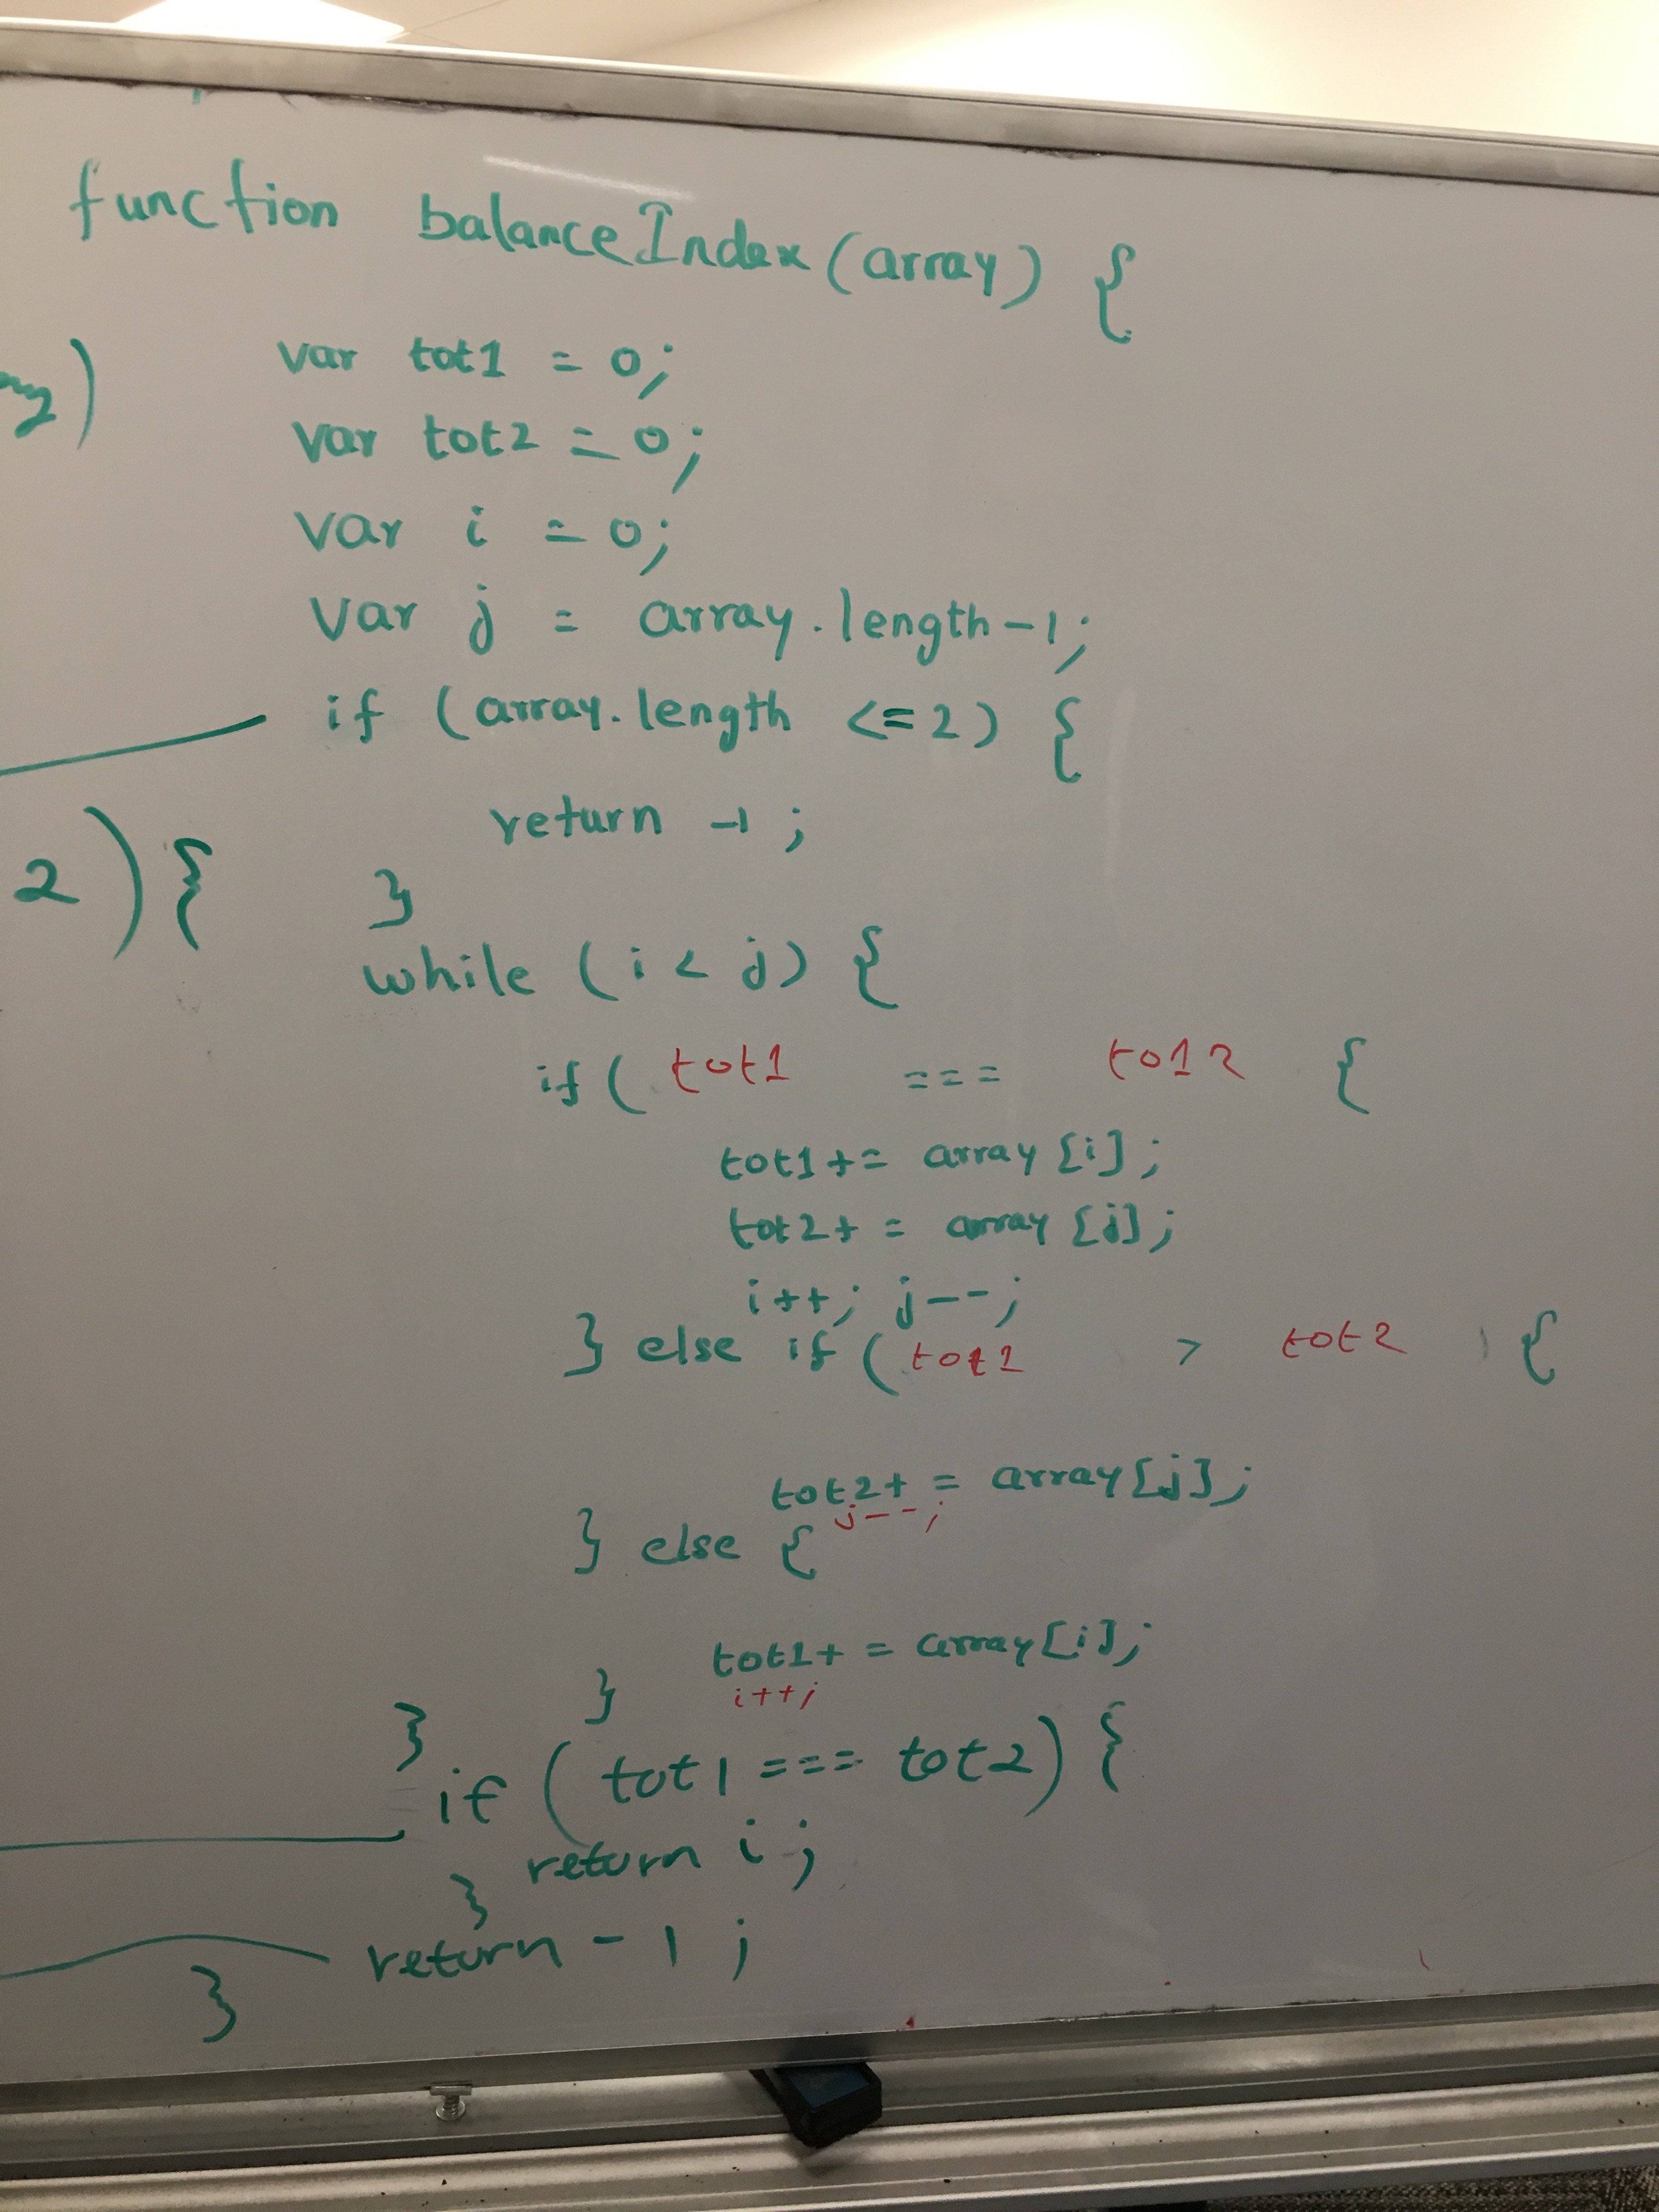 function balanceIndex(array) {
var tot1 = 0;
var tot2 = 0;
var i = 0;
var j = array.length-1;
if (array.length <=2) {
return -1 ;
}
2) {
while (i < j) {
if ( tot1 === to12 {
tot1 += array [i] ;
tot2 + = array [j] ;
i++; j--;
} else if ( tot1 > tot2 ) {
tot2 + = array[j] ;
j--;
} else {
tot1 + = array[i] ;
i++;
}
}
if ( tot1 === tot2) {
return i ;
}
return -1 ;
}